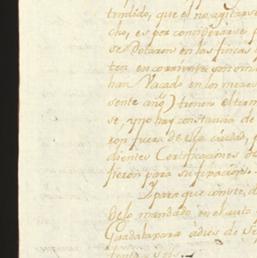 tendido, que el no agitarse
cho, es por considerarse
se Dotaron en las fincas
ten en corriente, son
han Vacado en los meses
sente año) tienen el term
se, y no hay constancia de
ron fuera de esta ciudad,
dientes Certificaciones de
fieron para su
Y para que conste, de
de lo mandado en el auto
Guadalaxara a dies de Se